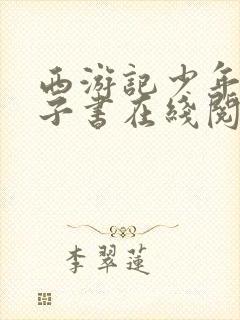 西游記少年
子書在綫閱
李翠蓮